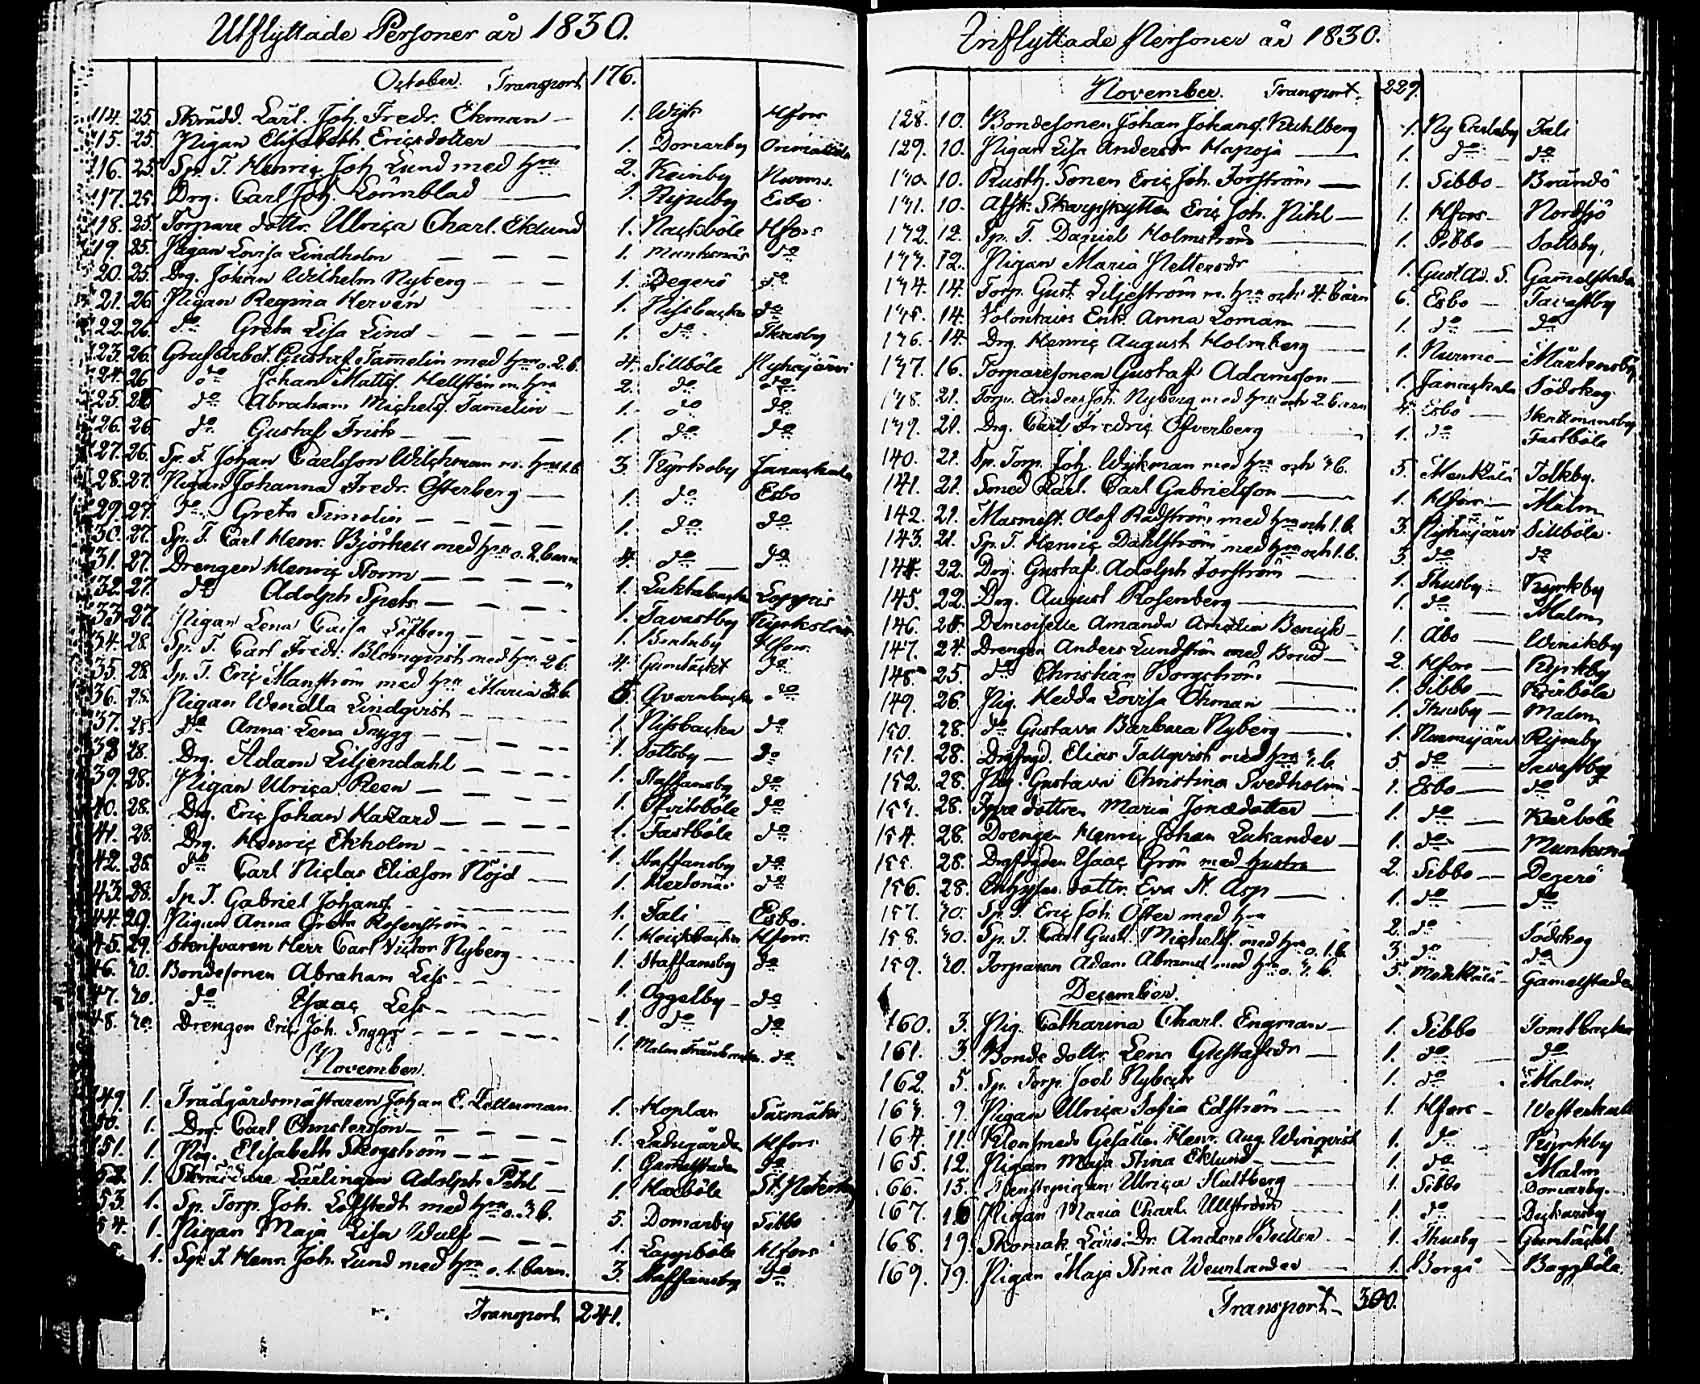 Utflyttade Personer år 1830.
October. Transport 176.
114. 25. Skrädd. Lärl. Joh. Fredr. Ekman — 1. Wijk Hfors
115. 25. Pigan Elisabeth Ericsdotter — 1. Domarby Orimattila
116. 25. Sp. T. Henric Joh. Lund med hru 2. Keinby Nurmi.
117. 25. Drg. Carl Joh. Lönnblad — 1. Ripuby Esbo
118. 25. Torpare dottr. Ulrica Charl. Eklund 1. Nackböle Hfors
119. 25. Pigan Lovisa Lindholm — 1. Munkenäs do
20. 25. Drg. Johan Wilhelm Nyberg — 1. Degerö do
21. 26. Pigan Regina Kervén 1. Nissbacka do
22. 26. do Greta Lisa Lind — 1. do Thusby
23. 26. Grufarbet. Gustaf Tamelin med hru o. 2 b. 4. Sillböle Nyhájärvi
24. 26 do Johan Matts. Hellstén m. hru 2. do do
25. 26 do Abraham Michels. Tamelin — 1. do do
26. 26 do Gustaf Frisk — 1. do do
27. 26. Sp. T. Johan Carlsson Wilckman m. hru 1 b. 3. Kyrkoby Janackala
28. 27. Pigan Johanna Fredr. Österberg — 1. do Esbo
29. 27. do Greta Simolin — 1. do do
30. 27. Sp. T. Carl Henr. Björkell med hru o. 2 barn 4. do — do
31. 27. Drengen Henric Storm —
32. 27. do Adolph Spets — 1. Luktabacka Loppis
33. 27. Pigan Lena Caisa Löfberg — 1. Tavastby Kyrkslätt
34. 28. Sp. T. Carl Fredr. Blomqvist med hru 2 b. 4. Gumtäckt do
35. 28. Sp. T. Eric Manström med hru Maria 3 b. 5. Qvarnbacka do
36. 28. Pigan Wendla Lindqvist — 1. Nissbacka do
37. 28 do Anna Lena Snygg — 1. Tottsby — do
38 28. Drg. Adam Liljendahl — 1. Staffansby do
39. 28. Pigan Ulrica Reen — 1. Qvisböle do
40. 28. Drg. Eric Johan Hazard — 1. Fastböle do
41. 28. Drg. Henric Ekholm — 1. Staffansby do
42. 28. do Carl Niclas Eliasson Nöjd — 1. Hertonäs do
43. 28. Sp. T. Gabriel Johans. 1. Tali Esbo.
44. 29. Pigan Anna Greta Rosenström 1. Hfors
45. 29. Herr Carl Victor Nyberg 1. Staffansby do
46. 30. Bondesonen Abraham Less 1. Oggelby — do
47. 30. do Esaac Less 1. do do
48. 30. Drengen Eric Joh. Snygg 1. Malm do
November.
149. 1. Trädgårdsmästaren Johan E. Zetterman 1. Hoplax
50. 1. Drg. Carl Christersson — 1. Ladugårda Hfors
151. 1. Pig. Elisabeth Skogström — 1. Gamelstaden do
52. 1. Skräddare Lärlingen Adolph Pihl — 1. Haxböle
53. 1. Sp. Torp. Joh. Löfstedt med hru o. 3 b. 5. Domarby Sibbo
54. 1. Pigan Maja Lisa Wulf — 1. Lappböle Hfors
1. Sp. T. Henr. Joh. Lund med hru o. 1. barn. 3. Staffansby do
Transport 241.
Inflyttade Personer år 1830.
November. Transport. 229.
128. 10. Bondesonen Johan Johans. Kuhlberg 1. Ny Carleby Tali
129. 10. Pigan Lisa Andersdr Hapoja — 1. do do
130 10. Rusth. Sonen Eric Joh. Forström — 1. Sibbo — Brändö
131. 10. Afsk. Skarpskytten Eric Joh. Pihl — 1. Hfors — Nordsjö
132. 12. Sp. T. Daniel Holmström 1. Sibbo — Tottsby.
133. 12. Pigan Maria Pettersdr 1. Gust. Ad. S. Gamelstaden
134. 14. Torp. Gust. Liljeström m. hru och 4. barn 6. Esbo — Tavastby
135. 14. Volontairs Enk. Anna Loman — 1. do do
136. 14. Drg. Henric August Holmberg — 1. Nurmi — Mårtensby
137. 16. Torparesonen Gustaf Adamsson — 1. Janackala Södskog
138. 21. Torp. Anders Joh. Nyberg med hru och 2. barn 4. Esbo — Skattmansby
139. 21. Drg. Carl Fredric Öfverberg 1. do Fastböle
140. 21. Sp. Torp. Joh. Wijkman med hru och 3 b. 5. Mentzälä Tolkby.
141. 21. Smed Lärl. Carl Gabrielsson — 1. Hfors — Malm
142. 21. Masmest. Olof Rådström med hru och 1. b. 3. Nyhájärvi Sillböle.
143. 21. Sp. T. Henric Dahlström med hru och 1. b. 3. do do
144. 22. Drg. Gustaf Adolph Forström — 1. Thusby — Kyrkby
145. 22. Drg. August Rosenberg — 1. do — Malm
146. 24. Demoiselle Amanda Amalia Benick — 1. Åbo — Winikby
147. 24. Drengen Anders Lundström med Brud — 2. Hfors — Kyrkby
148. 25. do Christian Borgström — 1. Sibbo — Kårböle
149. 26. Pig. Hedda Lovisa Öhman — 1. Thusby — Malm
150. 28. do Gustava Barbara Nyberg — 1. Nurmijärvi Ripuby
151. 28. Drgfogd. Elias Tallqvist med hru 3 b. 5 do — Tavastby
152. 28. Pig. Gustava Christina Svedholm — 1. Esbo — do
153. 28. dottren Maria Jonædotter — 1. do — Kårböle
154. 28. Drengen Henric Johan Lukander — 1. do — Munkenäs
155. 28. Drgfogden Esaac Grön med hustru 2. Sibbo — Degerö
156. 28. Inhyses dottr. Eva N. Asp — 1. do — do
157. 30. Sp. T. Eric Joh. Öster med hru 2. do Södskog
158. 30. Sp. T. Carl Gust. Michels. med hru o. 1. b. 3. do do
159. 30. Torparen Adam Abramss. med hru o. 3. b. 5. Mentzälä — Gamelstaden
December.
160. 3. Pig. Catharina Charl. Engman — 1. Sibbo Tomtbacka
161. 3. Bonde dottr. Lena Gustafsdr — 1. do — do
162. 5. Sp. Torp. Joel Nyback 1. do Malm
163. 9. Pigan Ulrica Sofia Edström — 1. Hfors — Westerkulla
164. 11. Klensmeds Gesällen Henr. Aug. Winqvist 1. do — Kyrkby
165. 12. Pigan Maja Stina Eklund — 1. do Malm
66. 15. Tjenstepigan Ulrica Hultberg — 1. Sibbo Domarby.
167. 16 Pigan Maria Charl. Ullström 1. do — Dickursby
168. 19. Skomak. Lärl. Dr. Anders Butter — 1. Thusby — Gumtäckt
169. 19. Pigan Maja Stina Wennlander — 1. Borgå — Baggböle
Transport — 300.